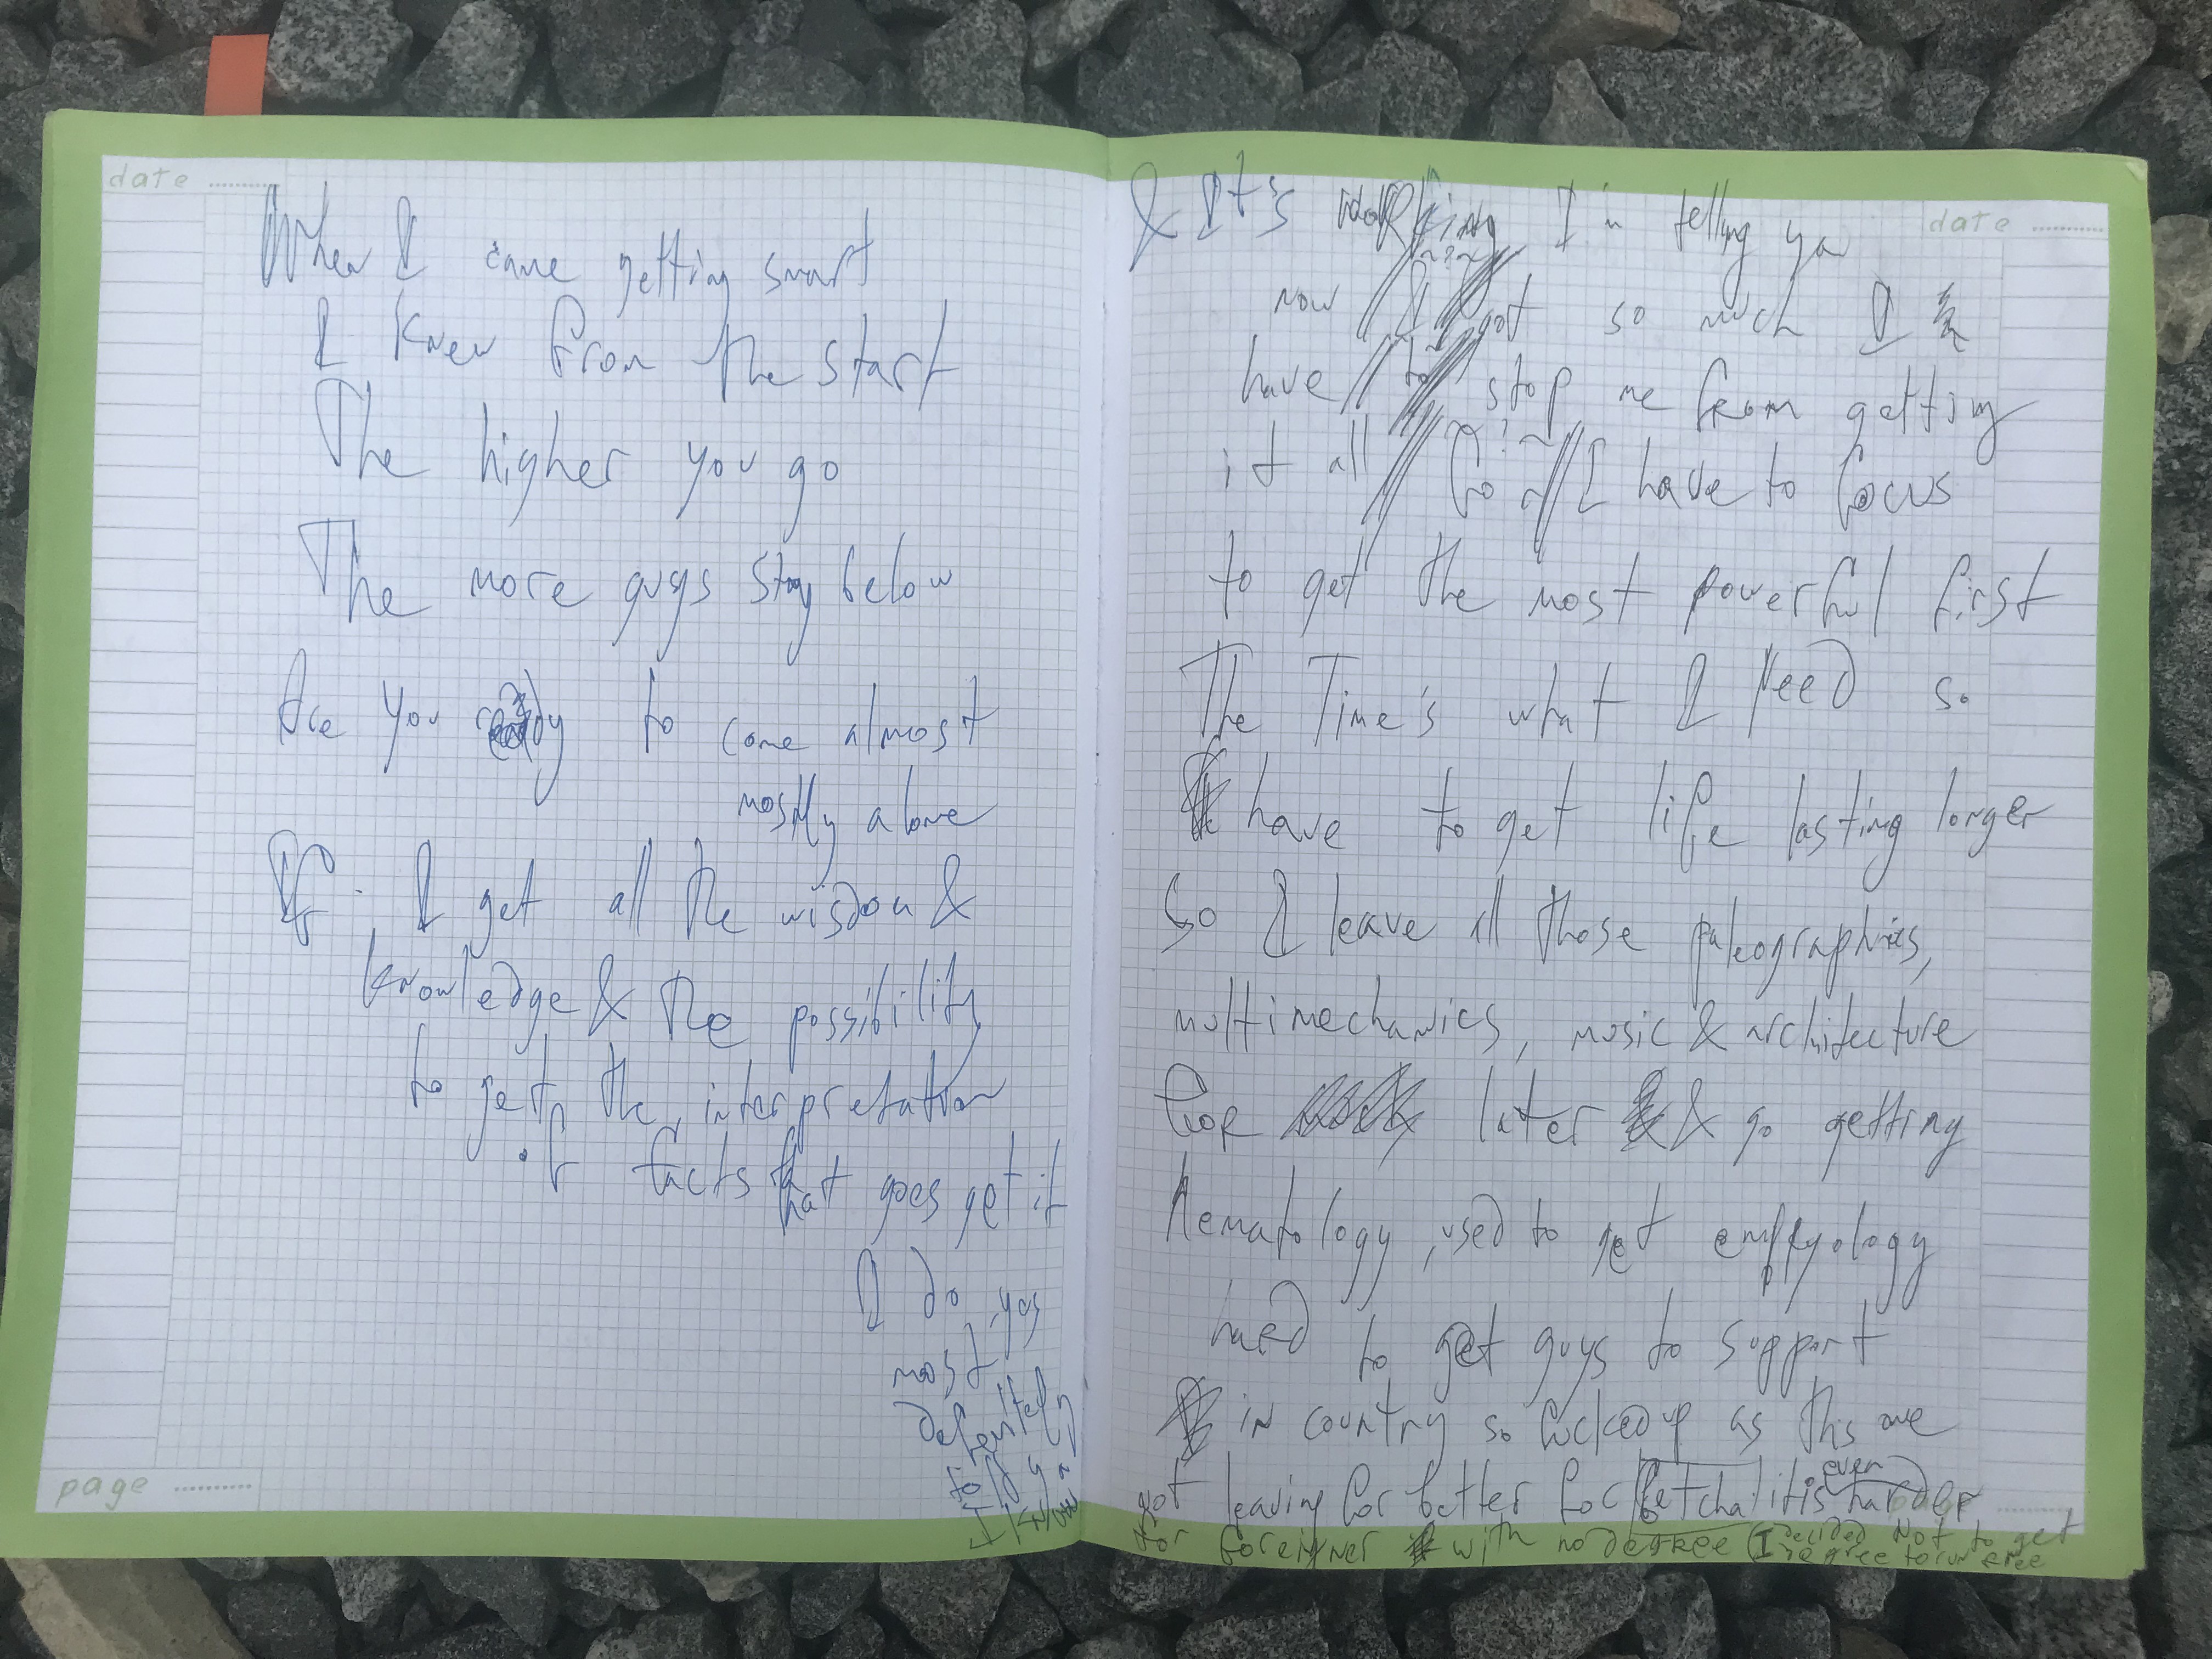 date
When I came getting smart
I knew from the start
The higher you go
The more guys stay below
Are you ready to come almost
mostly alone
I get all the wisdom &
knowledge & the possibility
to get the interpretation
if facts that goes get it
I do yes
most
page
date
& It's I'm telling ya
now I got so much I
have to stop me from getting
it all I have to focus
to get the most powerful first
The Time's what I need so
have to get life lasting longer
So I leave all those paleographies,
multimechanics, music & architecture
for later & go getting
Hematology, used to get embryology
need to get guys to support
in country so fucked up as this one
not leaving for better for
(even)
for foreigner with no DEGREE (I DECIDED NOT to get
DEGREE to cure FREE
page